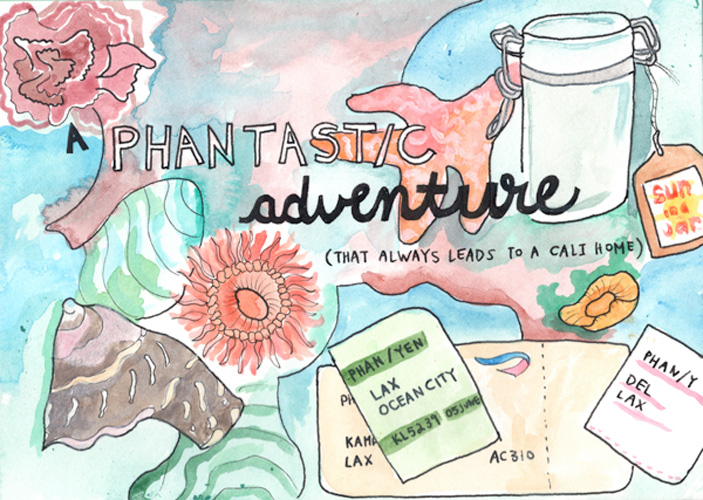 A PHANTASTIC
adventure
(THAT ALWAYS LEADS TO A CALI HOME)
sun
in a
jar
PHAN/YEN
LAX
OCEAN CITY
KL5239 05JUNE
PH
KAH
LAX
AC310
PHAN/Y
DEL
LAX